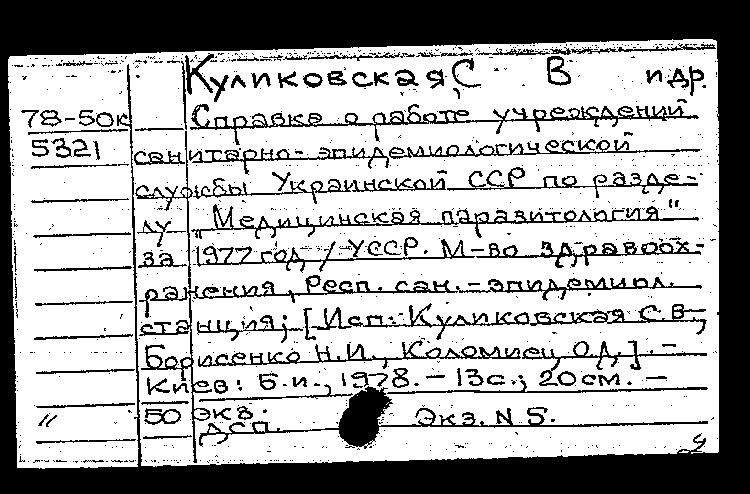 Куликовская, С В и др.
78-50к Справка о работе учреждений
5321 санитарно-эпидемиологической
службы Украинской ССР по разде-
лу „Медицинская паразитология"
за 1977 год / УССР. М-во здравоох-
ранения, Респ. сан.-эпидемиол.
станция; [Исп: Куликовская С.В.,
Борисенко Н.И., Коломиец О.Д.]. -
Киев: Б.и., 1978. - 13с.; 20см. -
" 50 экз. Экз. N 5.
ДСП.